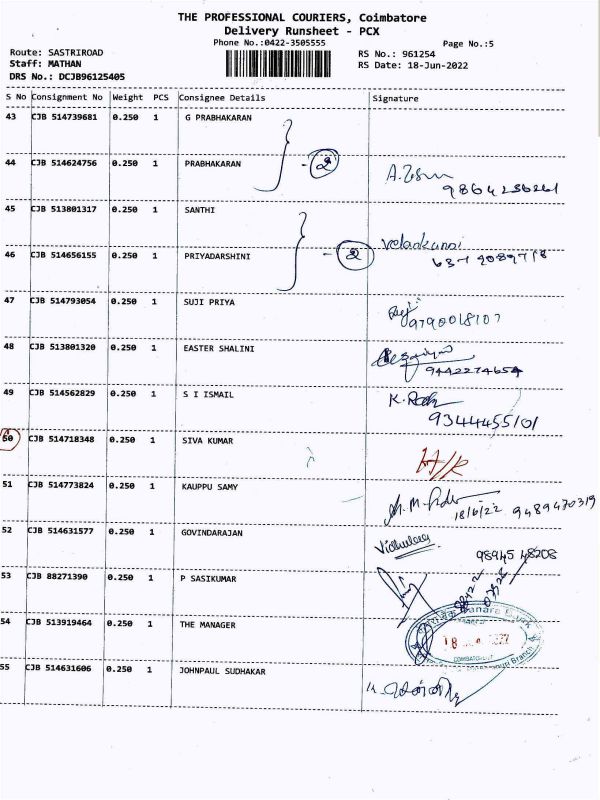 THE PROFESSIONAL COURIERS, Coimbatore
Delivery Runsheet - PCX
Phone No.:0422-3505555
Page No.:5
Route: SASTRIROAD
Staff: MATHAN
DRS No.: DCJB96125405
RS No.: 961254
RS Date: 18-Jun-2022
S No Consignment No Weight PCS Consignee Details Signature
43 CJB 514739681 0.250 1 G PRABHAKARAN
44 CJB 514624756 0.250 1 PRABHAKARAN
- 2
9864236261
45 CJB 513801317 0.250 1 SANTHI
46 CJB 514656155 0.250 1 PRIYADARSHINI
- 2
47 CJB 514793054 0.250 1 SUJI PRIYA
9790018107
48 CJB 513801320 0.250 1 EASTER SHALINI
9442274654
49 CJB 514562829 0.250 1 S I ISMAIL
9344455101
50 CJB 514718348 0.250 1 SIVA KUMAR
51 CJB 514773824 0.250 1 KAUPPU SAMY
18/6/22 9489470319
52 CJB 514631577 0.250 1 GOVINDARAJAN
98945 48208
53 CJB 88271390 0.250 1 P SASIKUMAR
54 CJB 513919464 0.250 1 THE MANAGER
55 CJB 514631606 0.250 1 JOHNPAUL SUDHAKAR